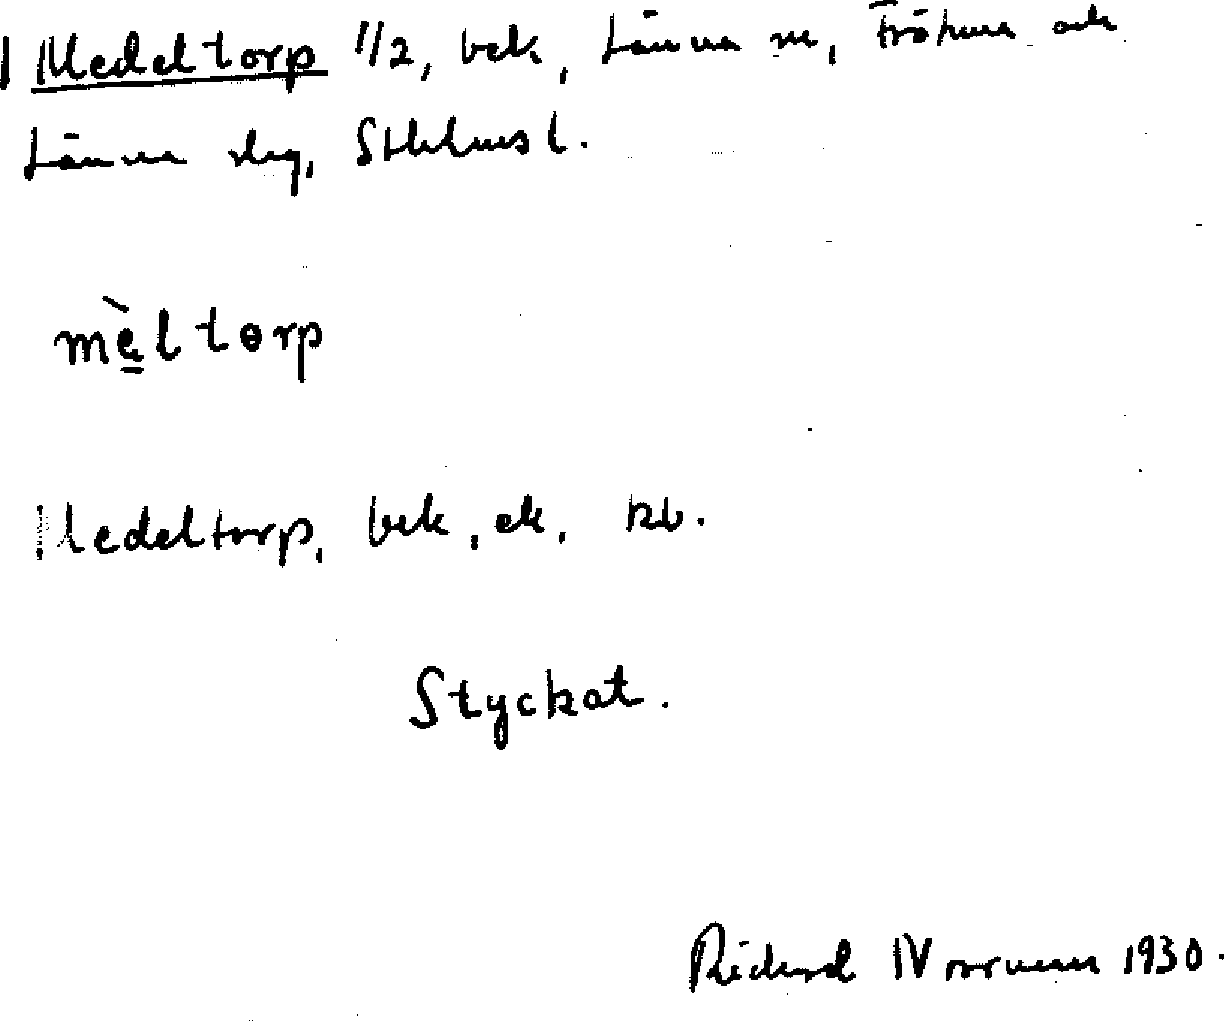 Medeltorp 1/2, bek, Länna sn, Frötuna och
Länna slg, Sthlms l.
mèltorp
Medeltorp, bek, ek, kb.
Styckat.
Rickard Norrman 1930.